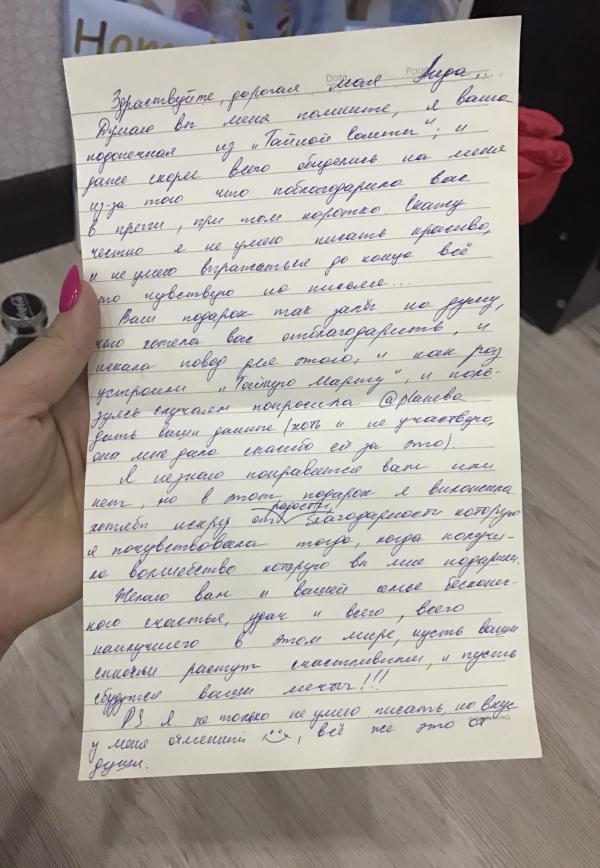 Home
Date Page
Здраствуйте, дорогая моя Аида...
Думаю вы меня помните, я ваша
подопечная из „Тайной Санты", и
даже скорее всего обиделись на меня
из-за того что поблагодарила вас
в прегги, при том коротко. Скажу
честно я не умею писать красиво,
и не умею выражаться до конца всё
что чувствую на письме...
Ваш подарок так запал на душу,
что хотела вас отблагодарить, и
искала повод для этого, и как раз
устроили „Тайную Марту", и поль-
зуясь случаем попросила @planeba
дать ваши данные (хоть и не участвую,
она мне дала спасибо ей за это).
Я незнаю понравится вам или
нет, но в этот подарок я вложила
хотябы искру радости, благодарности которую
я почувствовала тогда, когда получи-
ла волшебство которую вы мне подарили.
Желаю вам и вашей семье бесконеч-
ного счастья, удач и всего, всего
наилучшего в этом мире, пусть ваши
сыночки растут счастливыми, и пусть
сбудутся ваши мечты!!!
PS Я не только не умею писать, но вкус
у меня отменный, всё же это от
души.
Coca-Cola